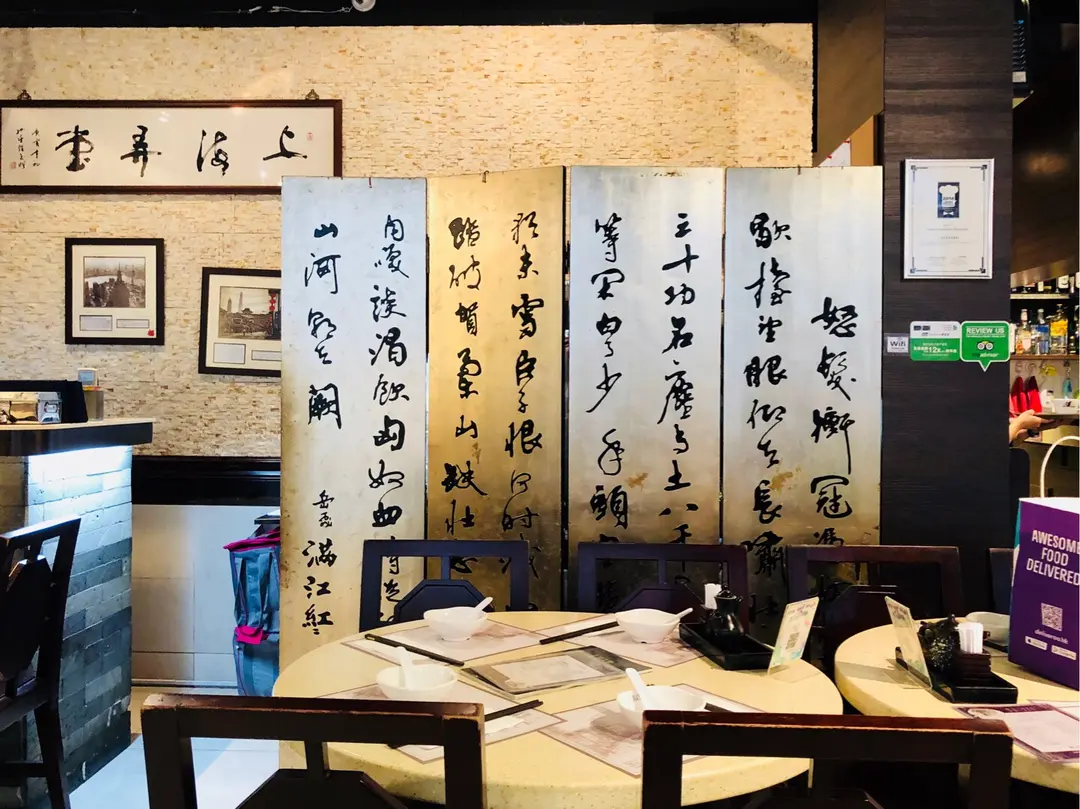 上海弄堂
怒髮衝冠憑
歇擡望眼仰天長嘯壯
三十功名塵與土八千
等閑白了少年頭空
猶未雪臣子恨何時滅
踏破賀蘭山缺壯志
肉笑談渴飲匈奴血待從
山河朝天闕
岳飛
滿江紅
WiFi
REVIEW US
tripadvisor
AWESOME
FOOD
DELIVERED
deliveroo.hk